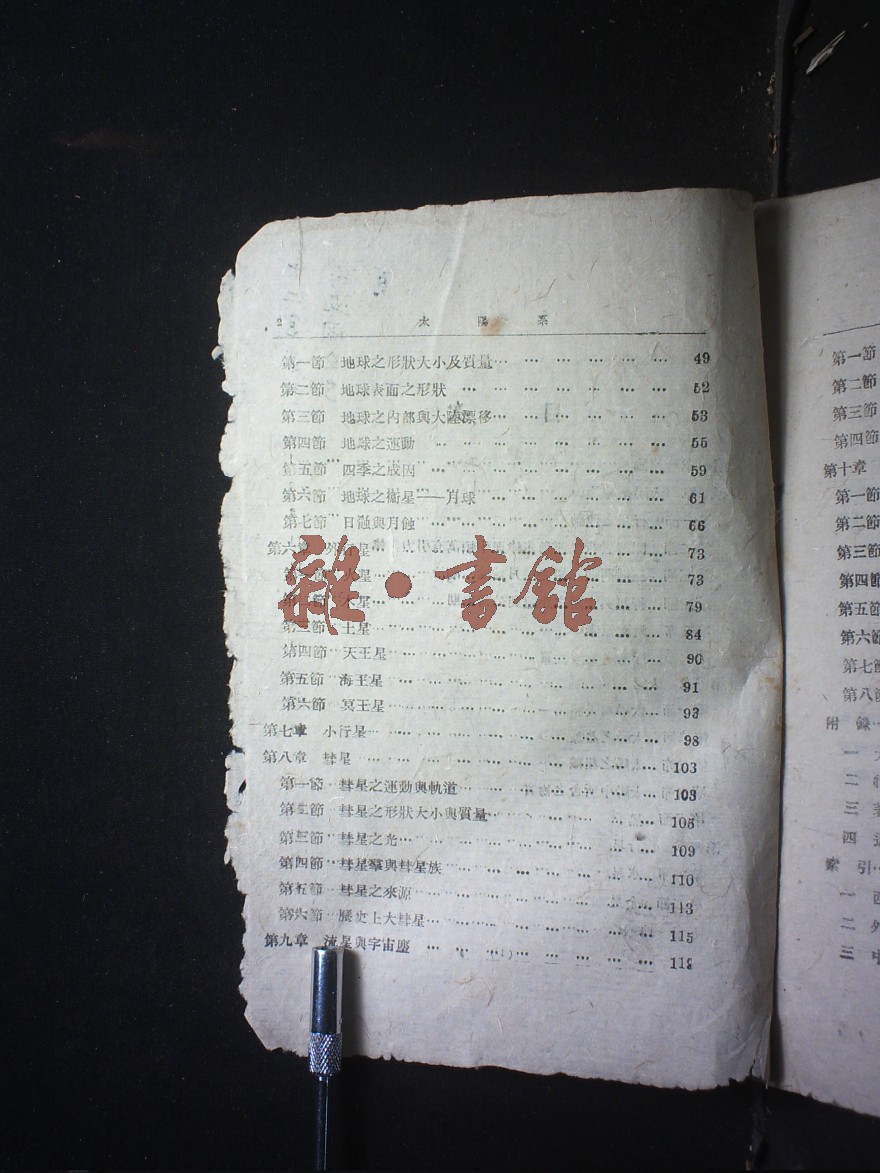 2 太陽系
第一節 地球之形狀大小及質量 49
第二節 地球表面之形狀 52
第三節 地球之內部與大陸漂移 53
第四節 地球之運動 55
第五節 四季之成因 59
第六節 地球之衞星——月球 61
第七節 日蝕與月蝕 66
第六章 外行星 73
星 73
木星 79
第三節 土星 84
第四節 天王星 90
第五節 海王星 91
第六節 冥王星 93
第七章 小行星 98
第八章 彗星 103
第一節 彗星之運動與軌道 103
第二節 彗星之形狀大小與質量 105
第三節 彗星之光 109
第四節 彗星羣與彗星族 110
第五節 彗星之來源 113
第六節 歷史上大彗星 115
第九章 流星與宇宙塵 118
雜·書館
第一節
第二節
第三節
第四節
第十章
第一節
第二節
第三節
第四節
第五節
第六節
第七節
第八節
附錄
一
二
三
四
索引
一
二
三